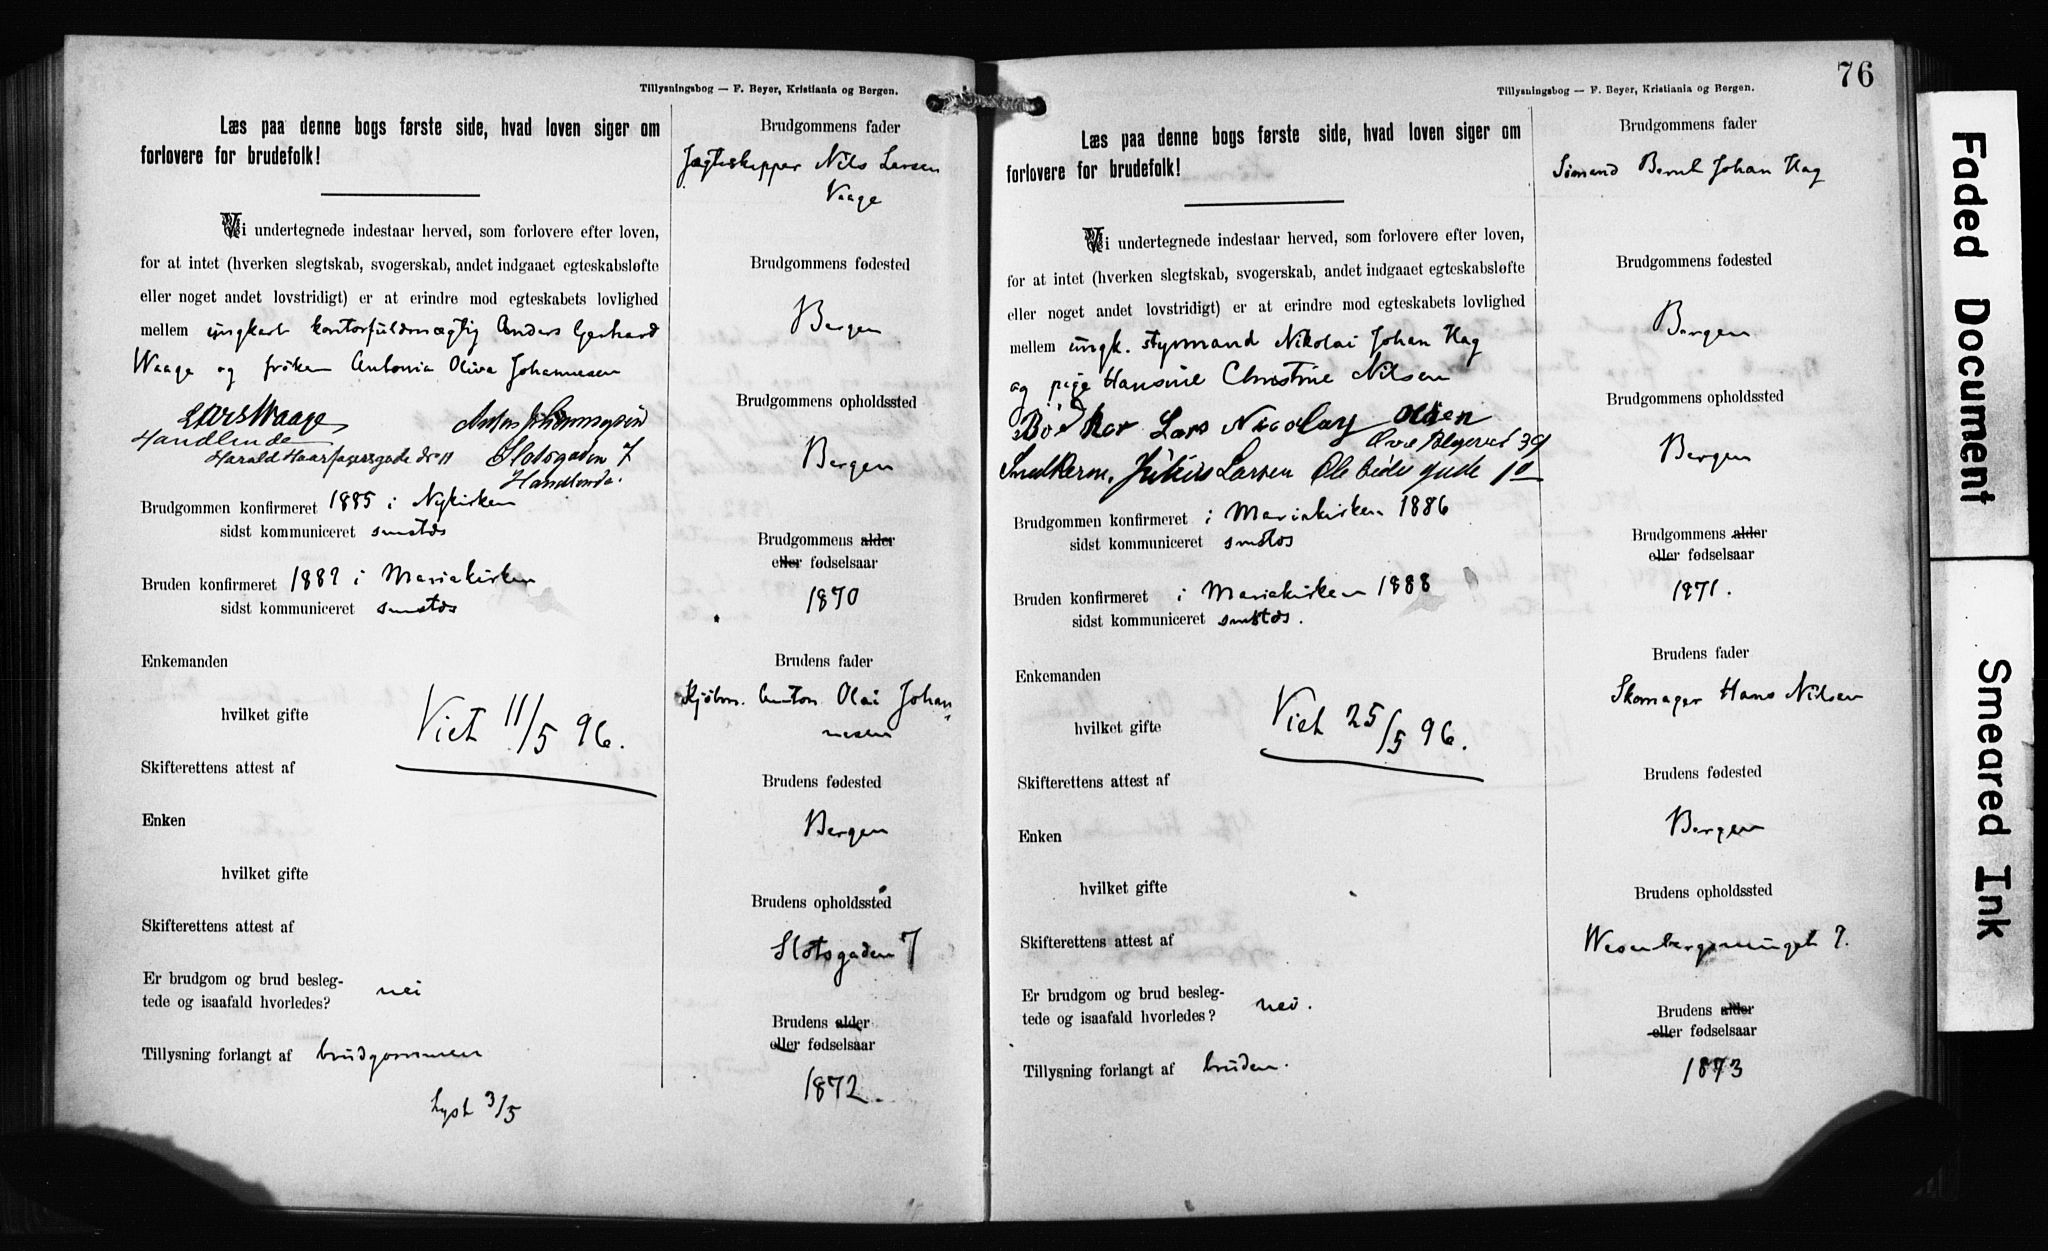 Tillysningsbog — F. Beyer, Kristiania og Bergen.
Læs paa denne bogs første side, hvad loven siger om
forlovere for brudefolk!
Vi undertegnede indestaar herved, som forlovere efter loven,
for at intet (hverken slegtskab, svogerskab, andet indgaaet egteskabsløfte
eller noget andet lovstridigt) er at erindre mod egteskabets lovlighed
mellem ungkarl kontorfuldmægtig Anders Gerhard
Waage og frøken Antonia Oliva Johannesen
Lars Waage
Handlende
Harald Haarfagersgade No 11
Slotsgaden 7
Handlende.
Brudgommen konfirmeret 1885 i Nykirken
sidst kommuniceret smstds
Bruden konfirmeret 1887 i Mariakirken
sidst kommuniceret smstds
Enkemanden
hvilket gifte
Viet 11/5 96.
Skifterettens attest af
Enken
hvilket gifte
Skifterettens attest af
Er brudgom og brud besleg-
tede og isaafald hvorledes? nei
Tillysning forlangt af brudgommen
Lyst 3/5
Brudgommens fader
Jægteskipper Nils Larsen
Vaage
Brudgommens fødested
Bergen
Brudgommens opholdssted
Bergen
Brudgommens alder
eller fødselsaar
1870
Brudens fader
Kjøbm. Anton Olai Johan-
nesen
Brudens fødested
Bergen
Brudens opholdssted
Slotsgaden 7
Brudens alder
eller fødselsaar
1872.
76
Tillysningsbog — F. Beyer, Kristiania og Bergen.
Læs paa denne bogs første side, hvad loven siger om
forlovere for brudefolk!
Vi undertegnede indestaar herved, som forlovere efter loven,
for at intet (hverken slegtskab, svogerskab, andet indgaaet egteskabsløfte
eller noget andet lovstridigt) er at erindre mod egteskabets lovlighed
mellem ungk. styrmand Nikolai Johan Hag
og pige Hansine Christine Nilsen
Bødker Lars Nicolay Olsen
39
Julius Larsen Ole gade 10
Brudgommen konfirmeret i Mariakirken 1886
sidst kommuniceret smstds
Bruden konfirmeret i Mariakirken 1888
sidst kommuniceret smstds.
Enkemanden
hvilket gifte
Viet 25/5 96.
Skifterettens attest af
Enken
hvilket gifte
Skifterettens attest af
Er brudgom og brud besleg-
tede og isaafald hvorledes? nei.
Tillysning forlangt af bruden.
Brudgommens fader
Sømand Bernt Johan Hag
Brudgommens fødested
Bergen
Brudgommens opholdssted
Bergen
Brudgommens alder
eller fødselsaar
1871.
Brudens fader
Skomager Hans Nilsen
Brudens fødested
Bergen
Brudens opholdssted
Wesenbergsmuget 7.
Brudens alder
eller fødselsaar
1873
Faded Document
Smeared Ink